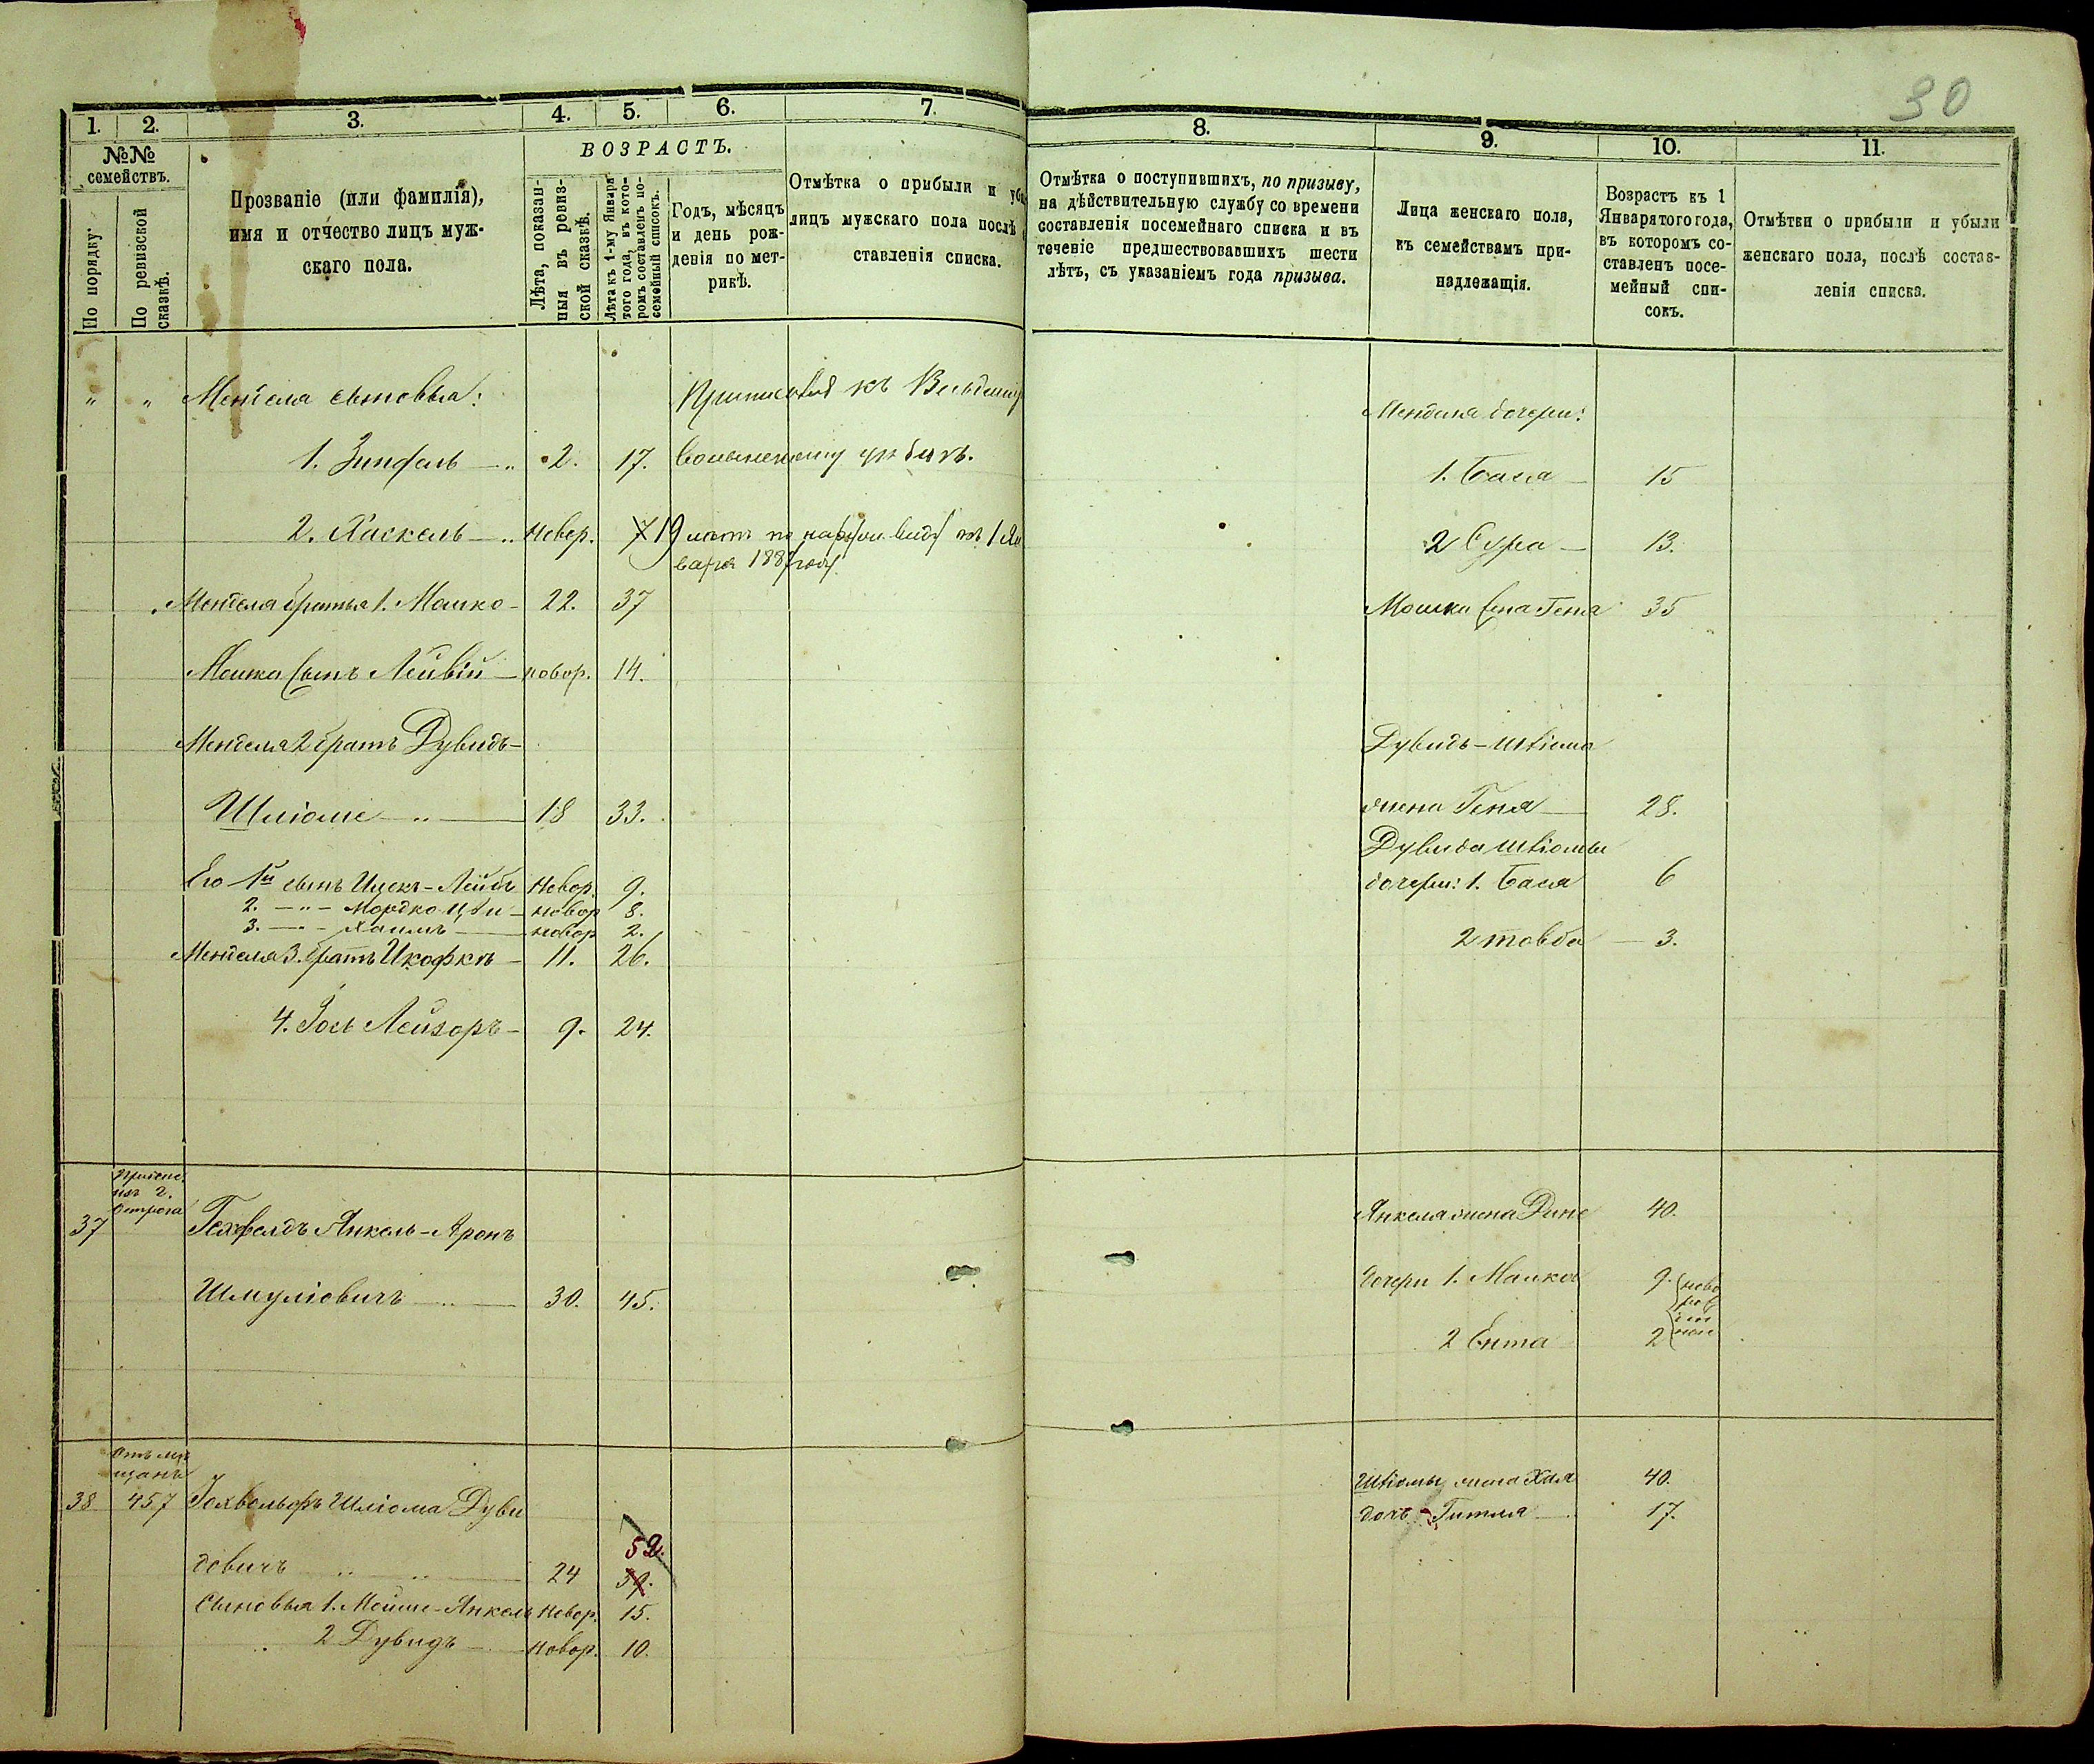 30
1.
2.
3.
4.
5.
6.
7.
№№
семействъ.
По порядку.
По ревизской
сказкѣ.
Прозваніе (или фамилія),
имя и отчество лицъ муж-
скаго пола.
ВОЗРАСТЪ.
Лѣта, показан-
ныя въ ревиз-
ской сказкѣ.
Лѣта къ 1-му Января
того года, въ кото-
ромъ составленъ по-
семейный списокъ.
Годъ, мѣсяцъ
и день рож-
денія по мет-
рикѣ.
Отмѣтка о прибыли и
лицъ мужскаго пола послѣ
ставленія списка.
8.
9.
10.
11.
Отмѣтка о поступившихъ, по призыву,
на дѣйствительную службу со времени
составленія посемейнаго списка и въ
теченіе предшествовавшихъ шести
лѣтъ, съ указаніемъ года призыва.
Лица женскаго пола,
къ семействамъ при-
надлежащія.
Возрастъ къ 1
Января того года,
въ которомъ со-
ставленъ посе-
мейный спи-
сокъ.
Отмѣтки о прибыли и убыли
женскаго пола, послѣ состав-
ленія списка.
" " Менделя сыновья:
къ
1. Зинфель 2. 17.
2. Хаскель новор. 7 19 лѣтъ по виду къ 1 Ян
варя 188 года
Менделя братья 1. Мошко 22. 37
Мошка сынъ Лейвій новор. 14.
Менделя 2 братъ Дувидъ-
Шліоме 18 33.
Его 1й сынъ Ицекъ-Лейбъ новор. 9.
2. Мордко новор 8.
3. Хаимъ новор 2.
Менделя 3. братъ 11. 26.
4. Лейзоръ 9. 24.
Менделя дочери:
1. Бася 15
2 Сура 13.
Мошки жена Геня 35
Дувидъ-Шліома
жена Геня 28.
Дувида Шліомы
дочери: 1. Бася 6
2 товба 3.
г.
Острога
37 Янкель-Аронъ
Шмуліовичъ 30. 45.
Янкеля жена 40.
дочери 1. Малка 9.
2 Ента 2
38 457 Шліома Дуви
довичъ 24 39. 52.
Сыновья 1. Мойше-Янкель новор. 15.
2 Дувидъ новор. 10.
Шліомы жена Хая 40.
дочь Гитля 17.